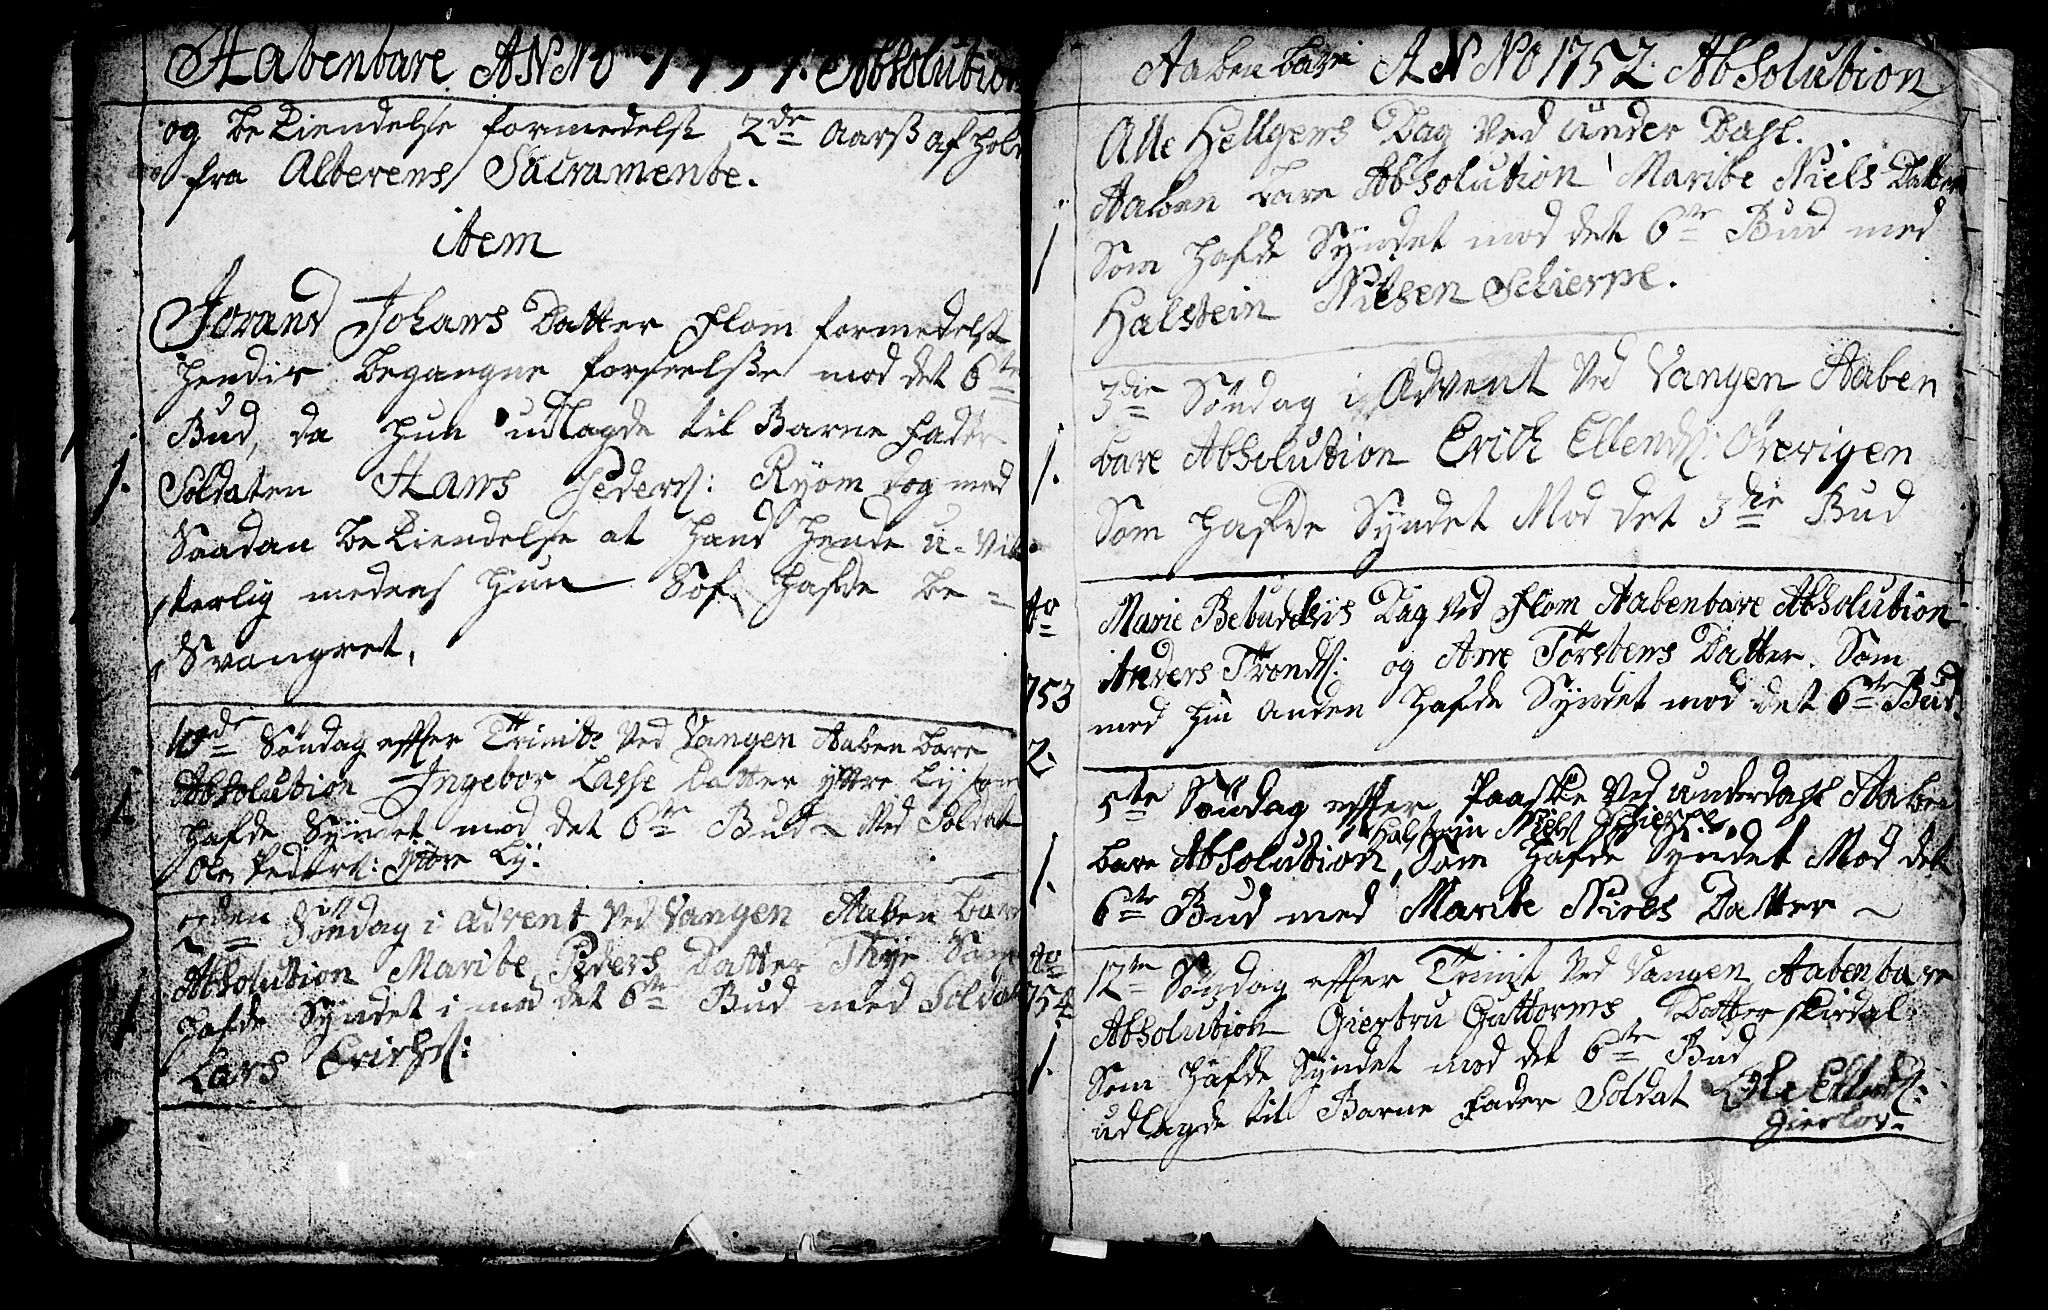 Aabenbare ANNO 1751. Absolution
og bekiendelse formedelst 2de Aarß afhold
fra Alterens Sacramente.
item
Jorand Johans Datter Flom formedelst
hendis begangne forseelße mod det 6te
Bud, da hun udlagde til Barne Fader
1. Soldaten Hans Peders: Ryom dog med
Saadan bekiendelse at hand hende u-vit-
terlig medens hun Sof hafde be-
Svangret,
Søndag effter Trinit: Ved Vangen Aabenbare
1. Absolution Ingebor Lasse Datter yttre Ly som
hafde Syndet mod det 6te Bud Med Soldat
Ole Peders: Ittre Ly:
2den Søndag i Advent Ved Vangen Aabenbare
1 Absolution Maribe Peders Datter Thye Som
hafde Syndet i mod det 6te Bud med Soldat
Lars Erichs:
Aabenbare ANNO 1752. Absolution
Alle Hellgens Dag Ved Underdahl.
Aabenbare Absolution Maribe Niels Datter
1 Som hafde Syndet mod det 6te Bud med
Halstein Nilsen Schierpe.
3die Søndag i Advent Ved Vangen Aaben
1. bare Absolution Erich Ellends: Överigen
Som hafde Syndet Mod det 3die Bud
Ao Marie Bebudelsis Dag Ved Flom Aabenbare Absolution
753 Anders Tronds: og Ane Torstens Datter. Som
med hin anden hafde Syndet mod det 6te Bud.
2.
5te Søndag effter Paaske Ved Underdahl Aaben
Halstein Niels: Schierpe
1. bare Absolution, Som hafde Syndet Mod det
6te Bud med Maribe Niels Datter
Ao 12te Søndag effter Trinit Ved Vangen Aabenbare
754 Absolution Giertru Guttorms Datter Skirdal
1. Som hafde Syndet mod det 6te Bud
udlagde til Barne Fader Soldat Ole Ellends:
Gierløv